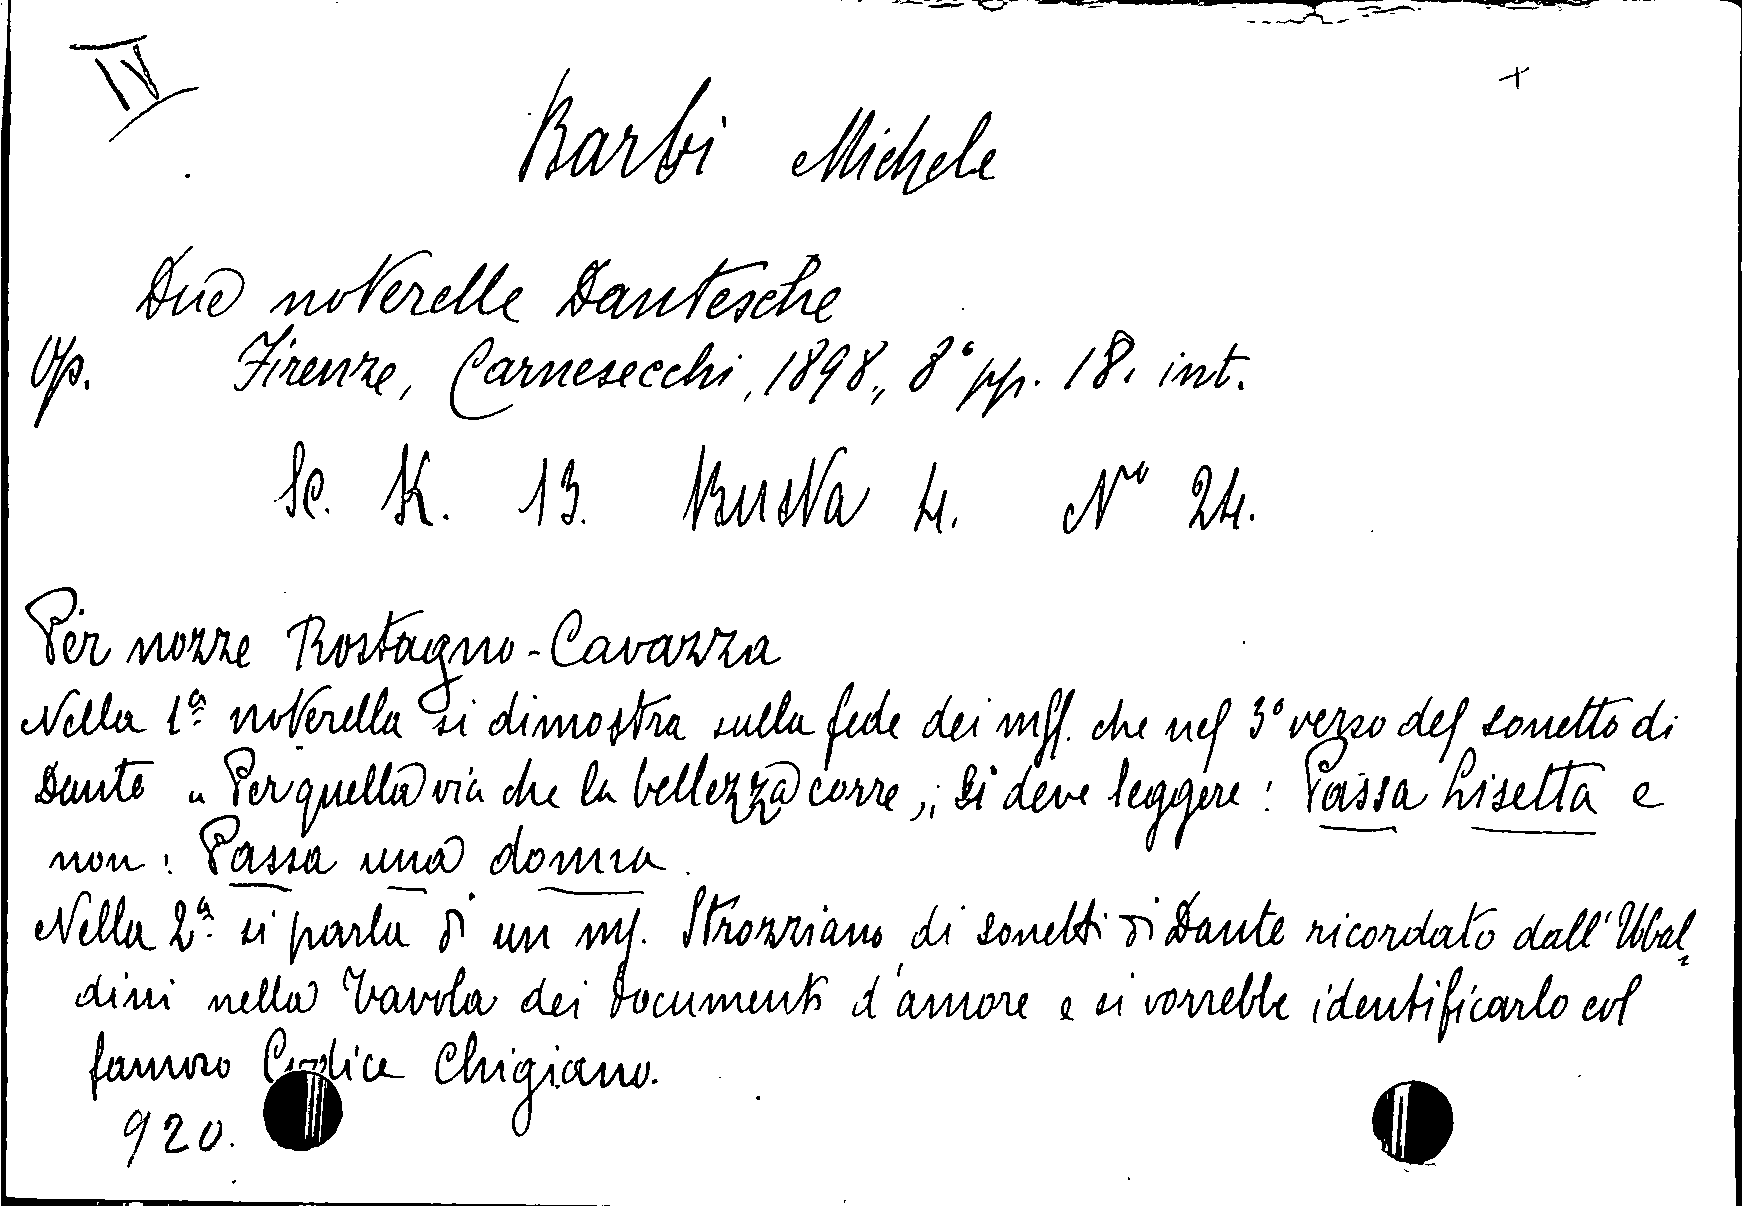 IV
+
Barbi Michele
Due noterelle Dantesche
Op. Firenze, Carnesecchi, 1898., 8° pp. 18. int.
Sc. K. 13. Busta 4. N° 24.
Per nozze Rostagno-Cavazza
Nella 1ª noterella si dimostra sulla fede dei mss. che nel 3° verso del sonetto di
Dante „ Per quella via che la bellezza corre „; si deve leggere: Passa Lisetta e
non: Passa una donna.
Nella 2ª si parla di un ms. Strozziano di sonetti di Dante ricordato dall'Ubal=
dini nella Tavola dei documenti d'amore e si vorrebbe identificarlo col
famoso Codice Chigiano.
920.